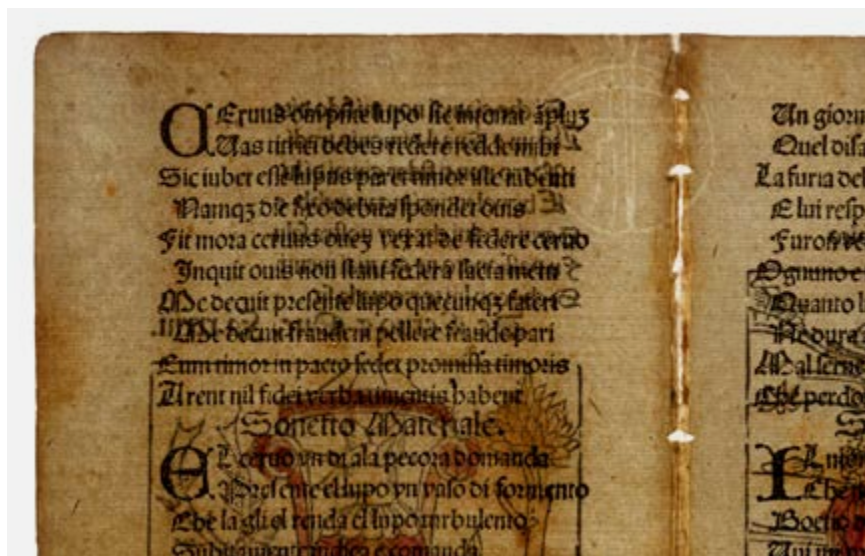 CEruus oui pñte lupo sic intonat āpluʒ
Uas tritici debes redere redde mihi
Sic iubet esse lupus paret timor ille iubenti
Namqʒ die fixo debita spondet ouis
Fit mora ceruus oueʒ vexat de federe ceruo
Inquit ouis non stant federa facta metu
Me decuit presente lupo quecunqʒ fateri
Me decuit fraudem pellere fraude pari
Cum timor in pacto sedet promissa timoris
Arent nil fidei verba timentis habent
Sonetto Materiale.
EL ceruo vn di ala pecora domanda
Presente el lupo vn vaso di formento
Che la gli el renda el lupo turbulento
Subitamente e comanda
Un giorn
Quel disa
La furia del
E lui resp
Furon
Ognuno e
Quanto
dura
Mal serue
Che perdo
S